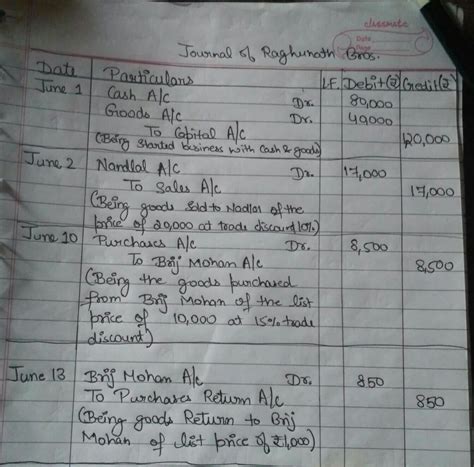 classmate
Date
Page
Journal of Raghunath Bros.
Date Particulars L.F. Debit(₹) Credit(₹)
June 1 Cash A/c Dr. 80,000
Goods A/c Dr. 40,000
To Capital A/c 120,000
(Being Started business with Cash & goods)
June 2 Nandlal A/c Dr. 17,000
To Sales A/c 17,000
(Being goods Sold to Nadlal of the
price of 20,000 at trade discount
June 10 Purchases A/c Dr. 8,500
To Brij Mohan A/c 8,500
(Being the goods purchased
from Brij Mohan of the list
price of 10,000 at 15% trade
discount)
June 13 Brij Mohan A/c Dr. 850
To Purchases Return A/c 850
(Being goods Return to Brij
Mohan of list price of ₹1,000)